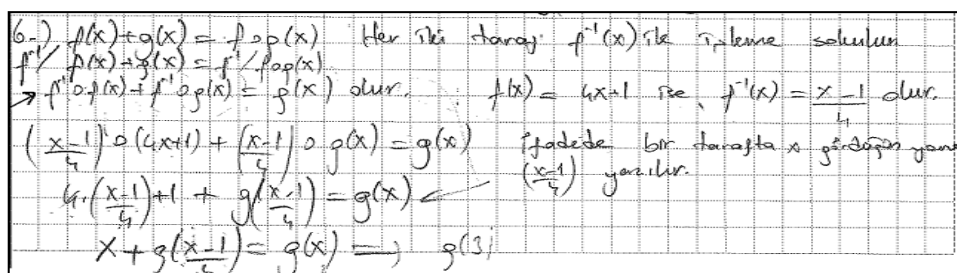 6-) f(x)+g(x) = fog(x) Her iki taraf f⁻¹(x) ile işleme sokulur
f⁻¹/ f(x)+g(x) = f⁻¹/ fog(x)
→ f⁻¹of(x)+f⁻¹og(x) = g(x) olur. f(x) = 4x+1 ise, f⁻¹(x) = (x-1)/4 olur.
((x-1)/4) o (4x+1) + ((x-1)/4) o g(x) = g(x) ifadede bir tarafta x gördüğün yere
4.((x-1)/4)+1 + g((x-1)/4) = g(x) ← ((x-1)/4) yazılır.
x + g((x-1)/4) = g(x) ⟹ g(3)